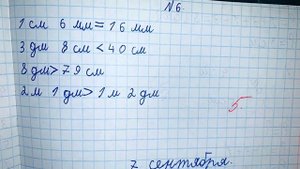 №6.
1 см 6 мм = 16 мм
3 дм 8 см < 40 см
8 дм > 79 см
2 м 1 дм > 1 м 2 дм
5.
7 сентября.